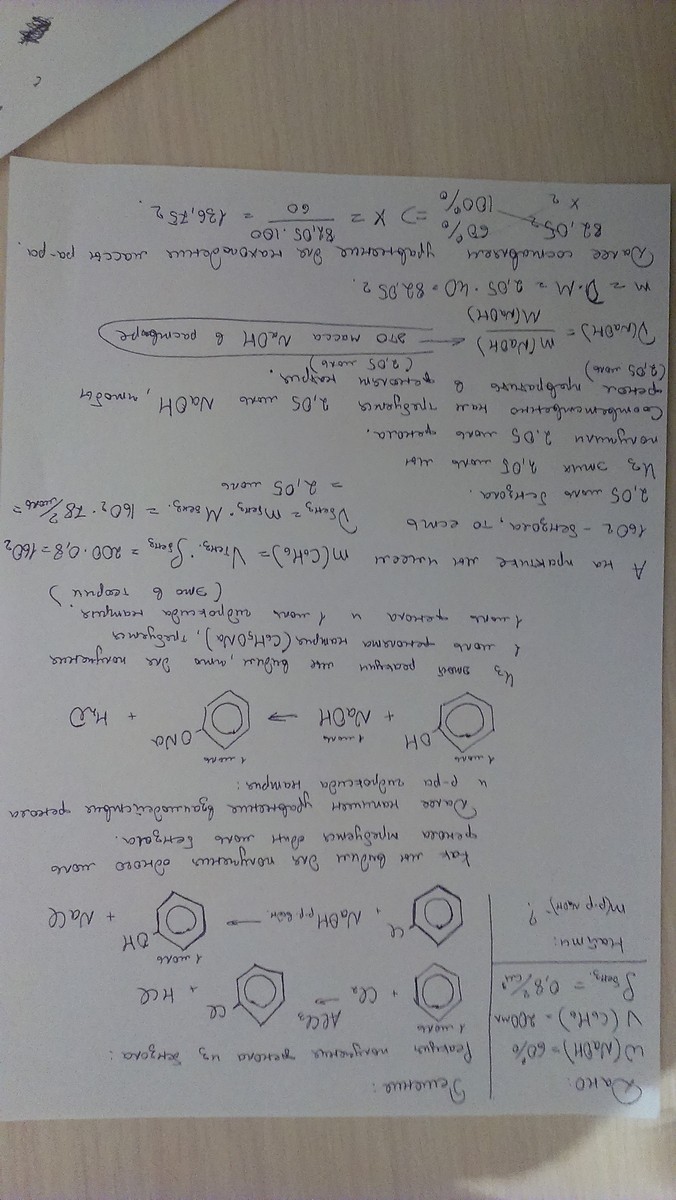 Дано:
W(NaOH)=60%
V(C6H6)=200мл
ρбенз. = 0,8 г/см³
Найти:
m(р-р NaOH)-?
Решение:
Реакция получения фенола из бензола:
1 моль
+ Cl2 AlCl3 ⇒ Cl + HCl
1 моль
Cl + NaOH р-р, вод. → OH + NaCl
Как мы видим для получения одного моль
фенола требуется один моль бензола.
Далее напишем уравнение взаимодействия фенола
и р-ра гидроксида натрия:
1 моль 1 моль 1 моль
OH + NaOH → ONa + H2O
Из этой реакции мы видим, что для получения
1 моль фенолята натрия (C6H5ONa), требуется
1 моль фенола и 1 моль гидроксида натрия.
(это в теории)
А на практике мы имеем m(C6H6)= Vбенз. · ρбенз = 200·0,8=160г
160г - бензола, то есть νбенз = mбенз · Mбенз. = 160г · 78 г/моль =
2,05 моль бензола. = 2,05 моль
Из этих 2,05 моль мы
получили 2,05 моль фенола.
Соответственно нам требуется 2,05 моль NaOH, чтобы
фенол превратить в фенолят натрия.
(2,05 моль) (2,05 моль)
ν(NaOH)= m(NaOH) / M(NaOH) ← это масса NaOH в растворе
m = ν·M = 2,05·40=82,05 г.
Далее составляем уравнение для нахождения массы ра-ра.
82,05г 60% ⇒ x = 82,05·100 / 60 = 136,75 г.
x г 100%